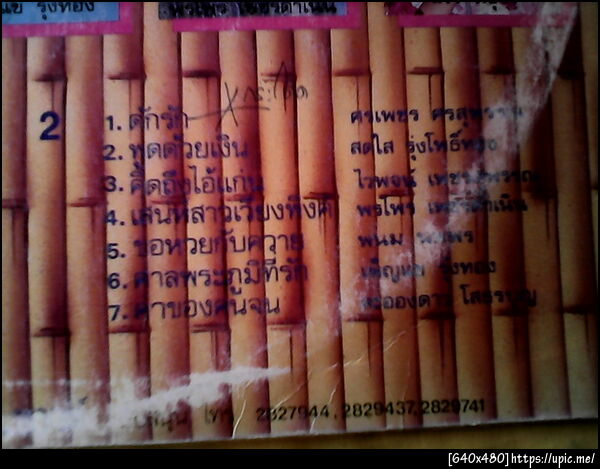 รุ่งทอง
2
1. ดักรัก ศรเพชร ศรสุพรรณ
2. พูดด้วยเงิน สดใส รุ่งโพธิ์ทอง
3. คิดถึงไอ้แก่น ไวพจน์ เพชรสุพรรณ
4. เสน่ห์สาวเวียงพิงค์ พรไพร เพชรดำเนิน
5. ขอหวยกับควาย พนม
6. ศาลพระภูมิที่รัก รุ่งทอง
7. ค่าของคนจน
โทร 2827944, 2829437, 2829741
[640x480]https://upic.me/